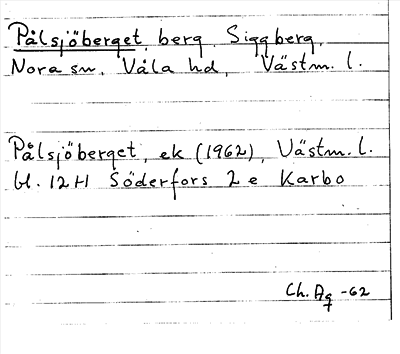 Pålsjöberget berg, Siggberg,
Nora sn, Våla hd, Västm. l.
Pålsjöberget, ek (1962), Västm. l.
bl. 12H Söderfors 2 e Karbo
Ch. Ag -62